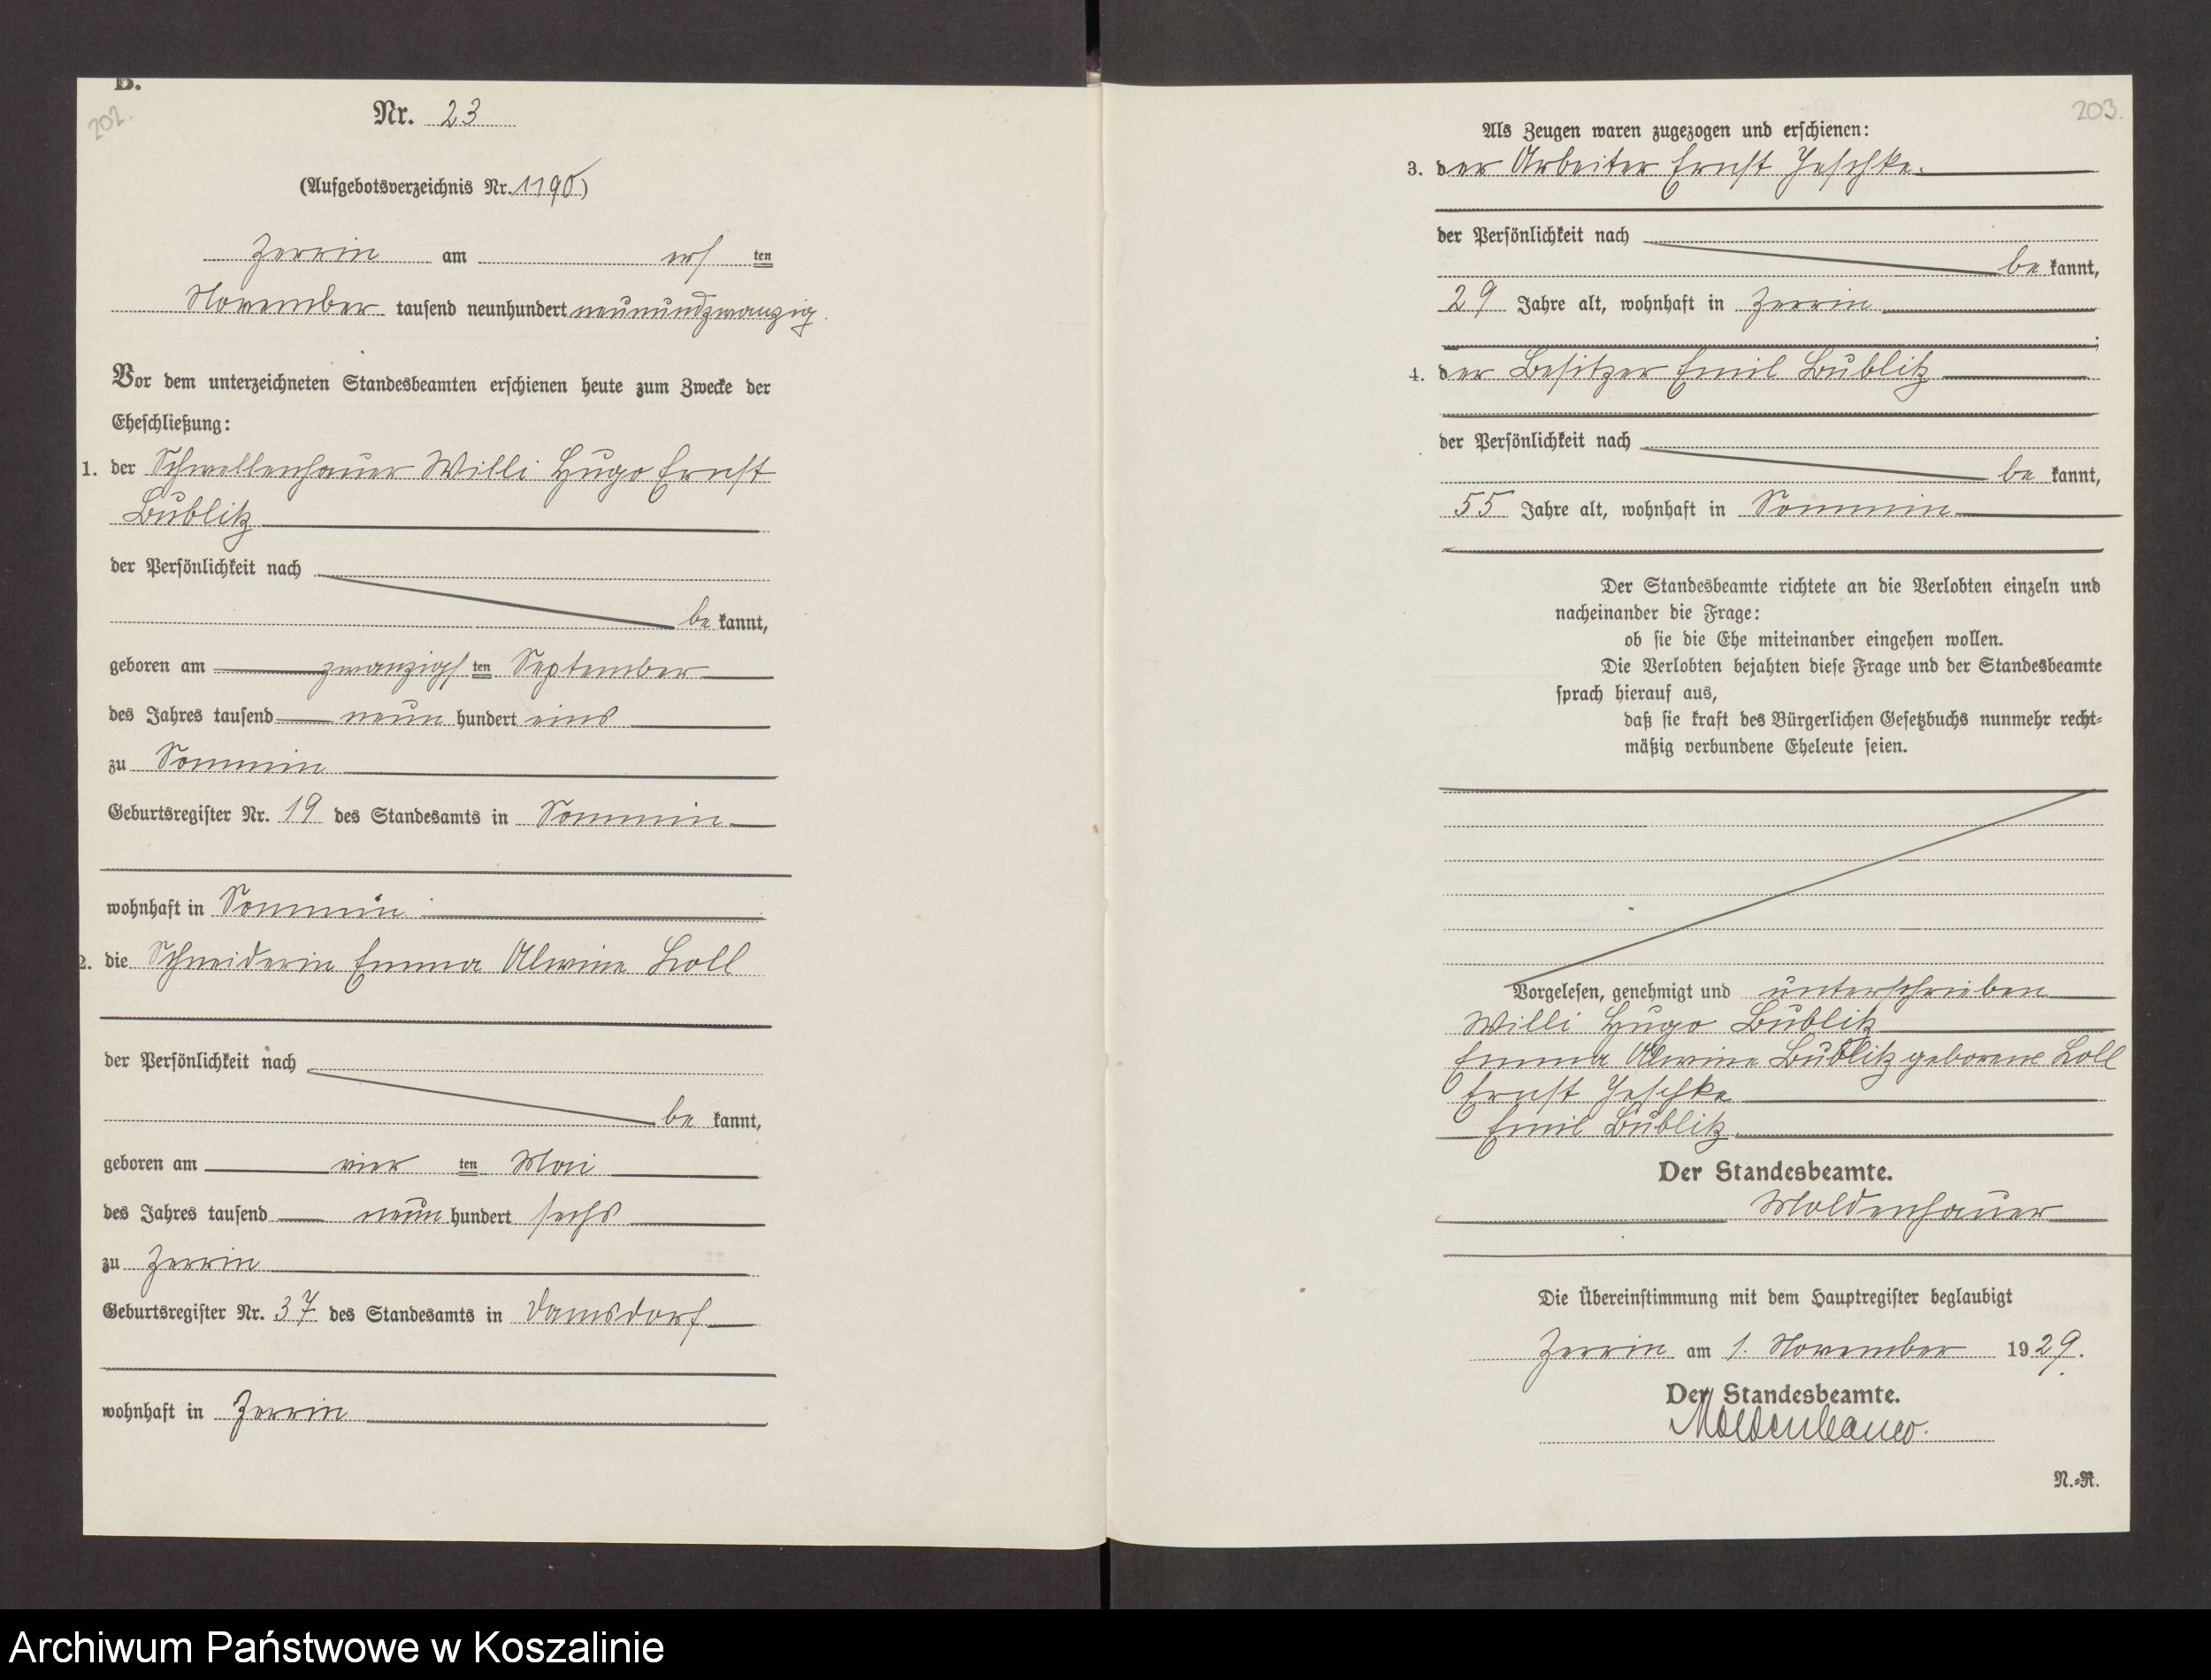 B.
202.
Nr. 23
(Aufgebotsverzeichnis Nr. 1190)
Zerrin am ers ten
November tausend neunhundert neunundzwanzig.
Vor dem unterzeichneten Standesbeamten erschienen heute zum Zwecke der
Eheschließung:
1. der Schwellenhauer Willi Hugo Ernst
Bublitz
der Persönlichkeit nach
be kannt,
geboren am zwanzigs ten September
des Jahres tausend neun hundert eins
zu Sommin
Geburtsregister Nr. 19 des Standesamts in Sommin
wohnhaft in Sommin
2. die Schneiderin Emma Alwine Loll
der Persönlichkeit nach
be kannt,
geboren am vier ten Mai
des Jahres tausend neun hundert sechs
zu Zerrin
Geburtsregister Nr. 37 des Standesamts in Damsdorf
wohnhaft in Zerrin
203.
Als Zeugen waren zugezogen und erschienen:
3. der Arbeiter Ernst Jeschke.
der Persönlichkeit nach
be kannt,
29 Jahre alt, wohnhaft in Zerrin
;
4. der Besitzer Emil Bublitz
der Persönlichkeit nach
be kannt,
55 Jahre alt, wohnhaft in Sommin
Der Standesbeamte richtete an die Verlobten einzeln und
nacheinander die Frage:
ob sie die Ehe miteinander eingehen wollen.
Die Verlobten bejahten diese Frage und der Standesbeamte
sprach hierauf aus,
daß sie kraft des Bürgerlichen Gesetzbuchs nunmehr recht-
mäßig verbundene Eheleute seien.
Vorgelesen, genehmigt und unterschrieben
Willi Hugo Bublitz
Emma Alwine Bublitz geborene Loll
Ernst Jeschke
Emil Bublitz
Der Standesbeamte.
Moldenhauer
Die Übereinstimmung mit dem Hauptregister beglaubigt
Zerrin am 1. November 1929.
Der Standesbeamte.
Moldenhauer.
N.-R.
Archiwum Państwowe w Koszalinie